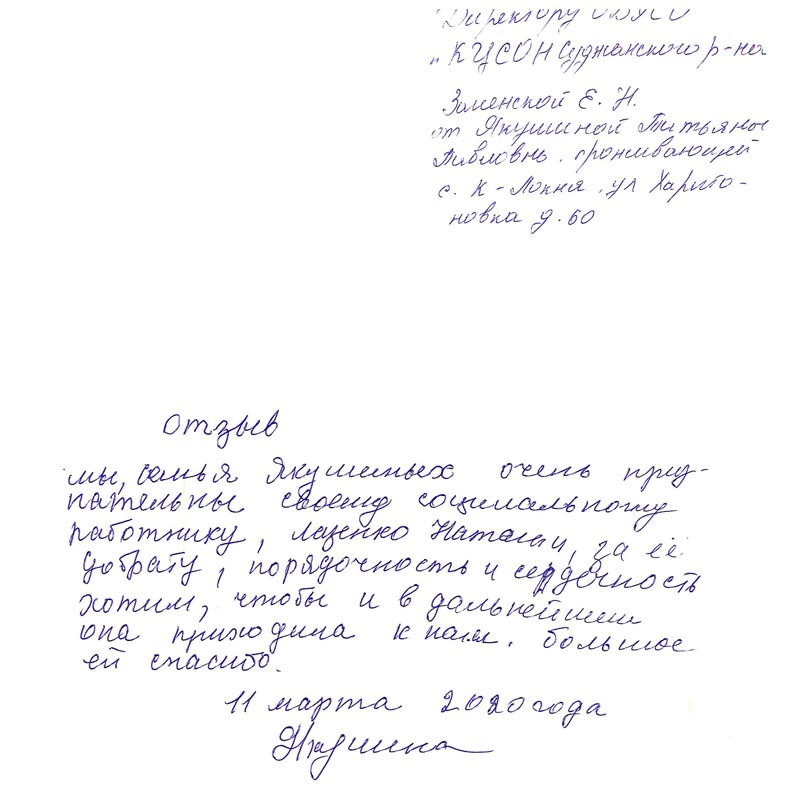 Директору
"КЦСОН Суджанского р-на
Заменской Е. Н.
от Якушиной Татьяны
Павловны, проживающей
с. К-Локня, ул Харито-
новка д. 60
отзыв
мы, семья Якушиных очень приз-
нательны своему социальному
работнику, Лазенко Наталии, за её
доброту, порядочность и сердечность
хотим, чтобы и в дальнейшем
она приходила к нам. большое
ей спасибо.
11 марта 2020 года
Якушина